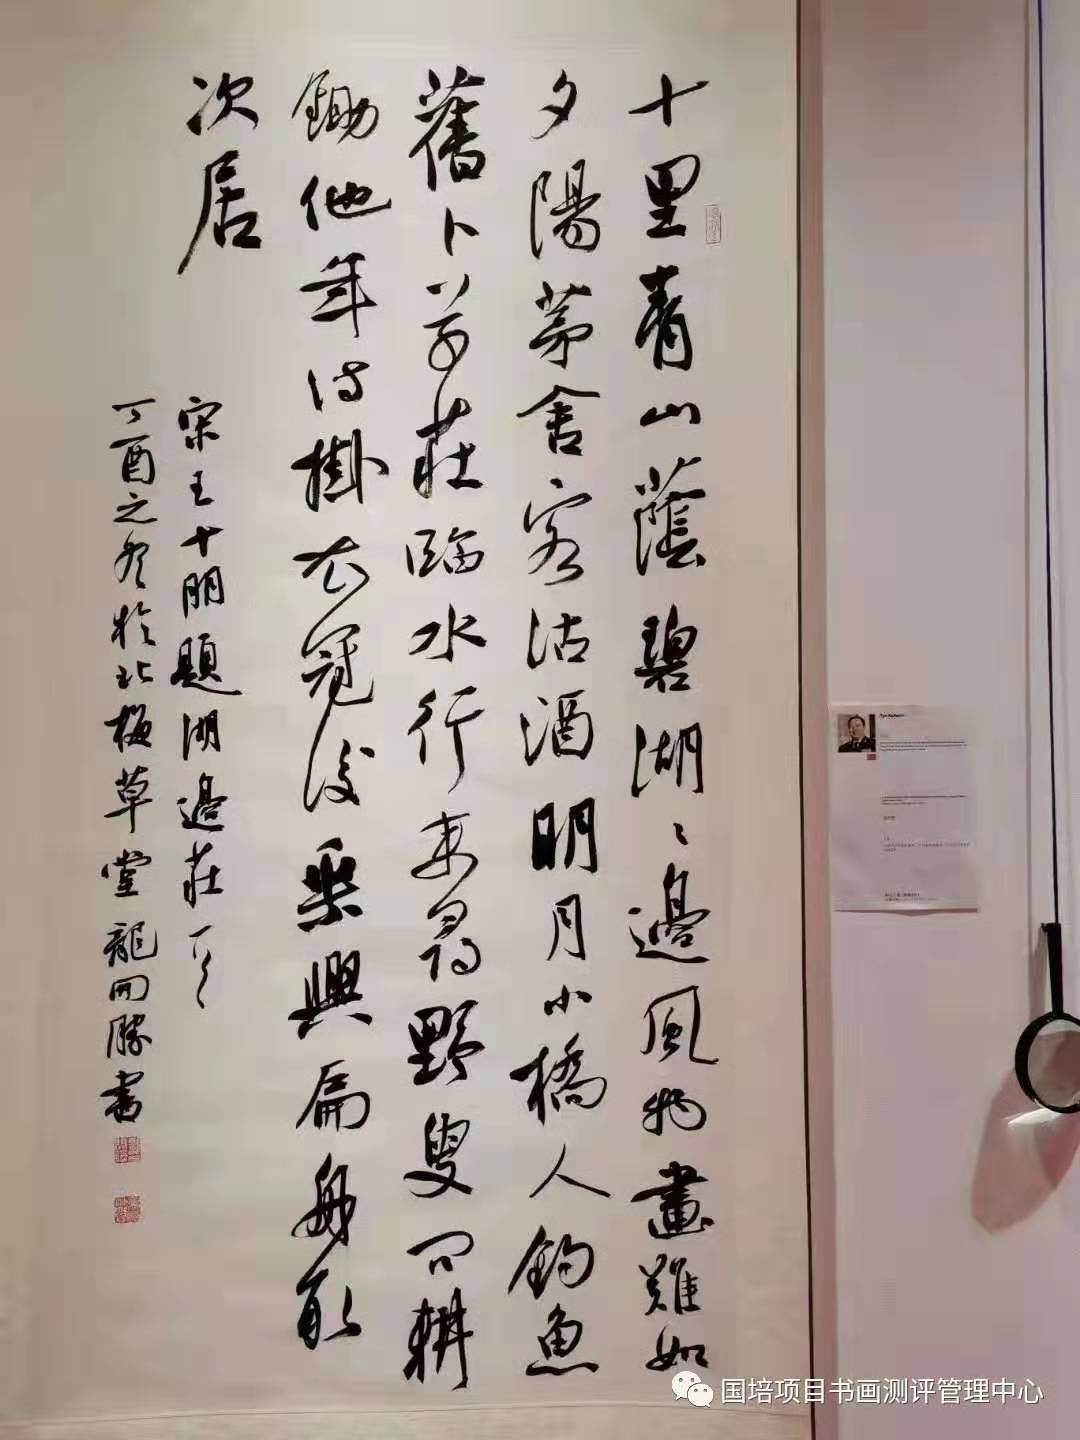 十里青山蔭碧湖〻邊風物畫難如
夕陽茅舍客沽酒明月小橋人釣魚
舊卜草莊臨水行来尋野叟問耕
鋤他年得掛衣冠後乘興扁舟取
次居
宋王十朋題湖邊莊
丁酉之冬於北梅草堂龍開勝書
国培项目书画测评管理中心